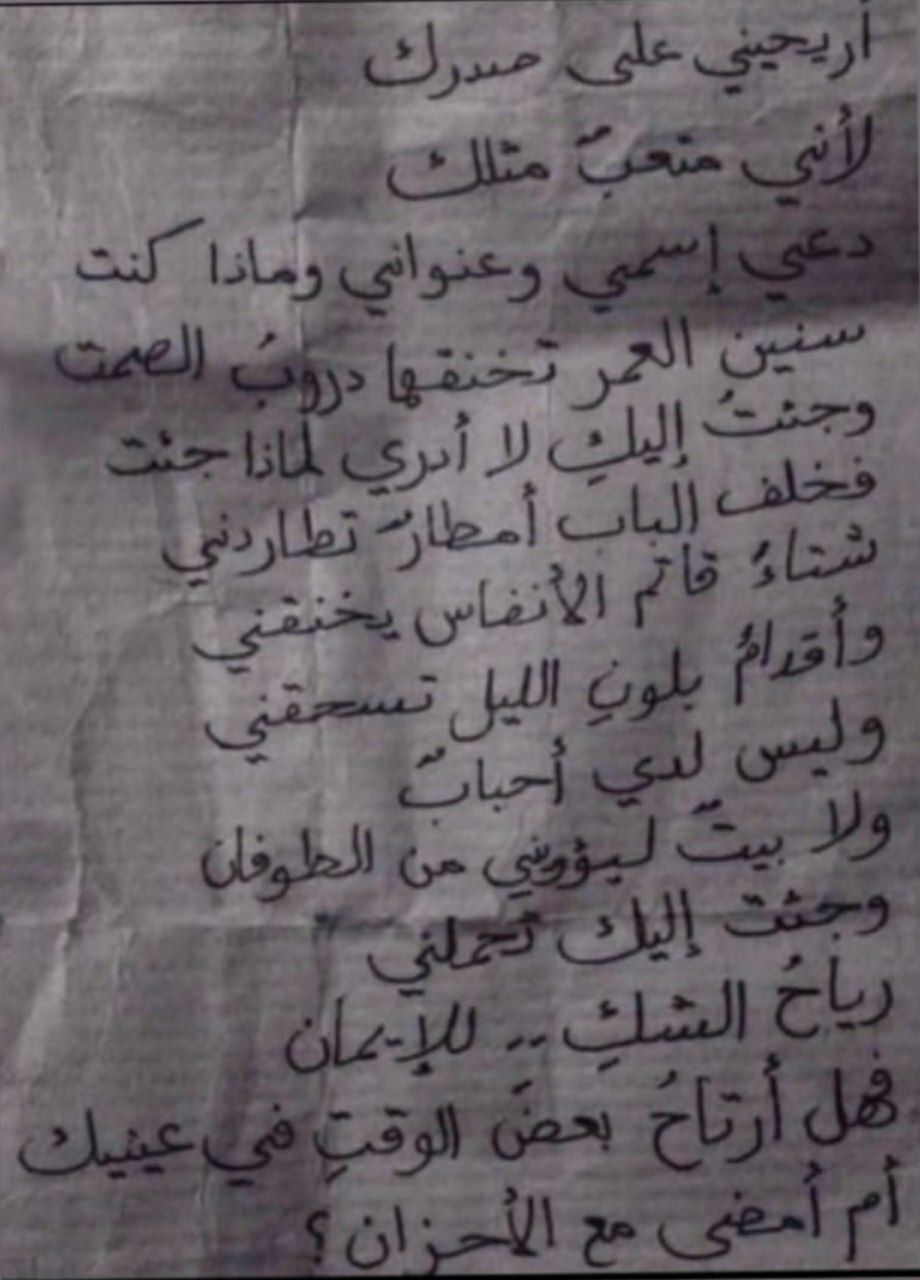 أريحيني على صدرك
لأني متعبٌ مثلك
دعي إسمي وعنواني وماذا كنت
سنين العمر تخنقها دروبُ الصمت
وجئتُ إليكِ لا أدري لماذا جئت
فخلف الباب أمطارٌ تطاردني
شتاءُ قاتم الأنفاس يخنقني
وأقدامُ بلونِ الليل تسحقني
وليس لدي أحبابٌ
ولا بيتٌ ليؤويني من الطوفان
وجئت إليك تحملني
رياحُ الشكِ .. للإيمان
فهل أرتاحُ بعضَ الوقتِ في عينيك
أم أمضى مع الأحزان؟